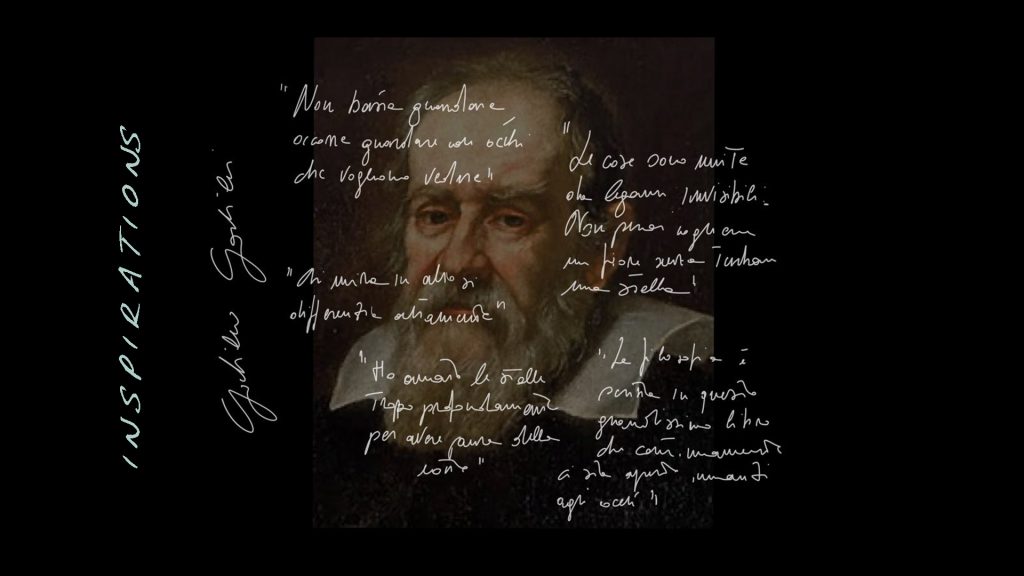 INSPIRATIONS
Galileo Galilei
"Non basta guardare
occorre guardare con occhi
che vogliono vedere"
"Chi mira in alto si
differenzia altamente"
"Ho amato le stelle
troppo profondamente
per avere paura della
notte"
"Le cose sono unite
da legami invisibili.
Non puoi cogliere
un fiore senza turbare
una stella"
"La filosofia è
scritta in questo
grandissimo libro
che continuamente
ci sta aperto innanzi
agli occhi"